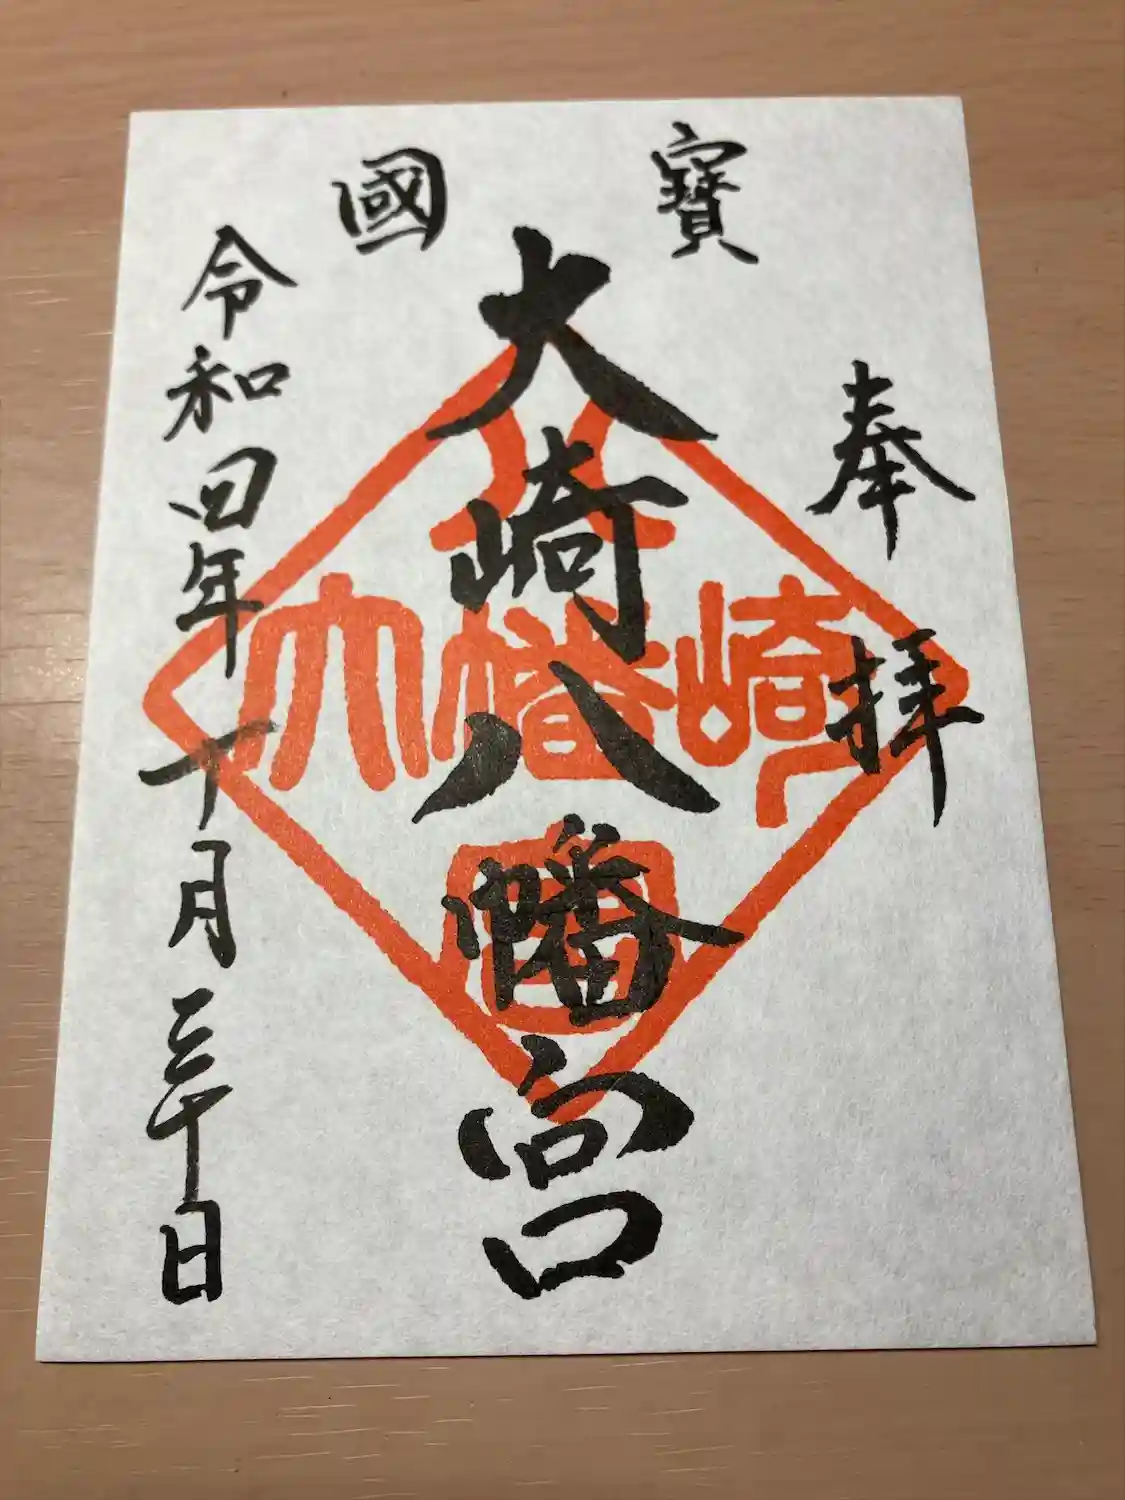 國寶
奉拝
大崎八幡宮
令和四年十月三十日
八
大幡崎
宮